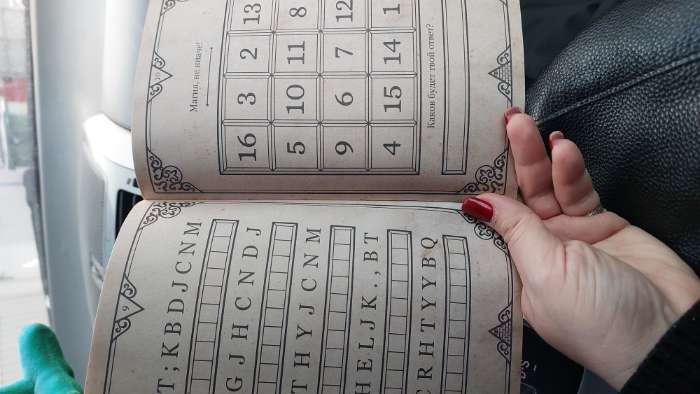 9
T;KBDJCNM
GJHCNDJ
THYJCNM
HELJK.,BT
CRHTYYBQ
10
Магия, не иначе!
16 3 2 13
5 10 11 8
9 6 7 12
4 15 14 1
Каков будет твой ответ?